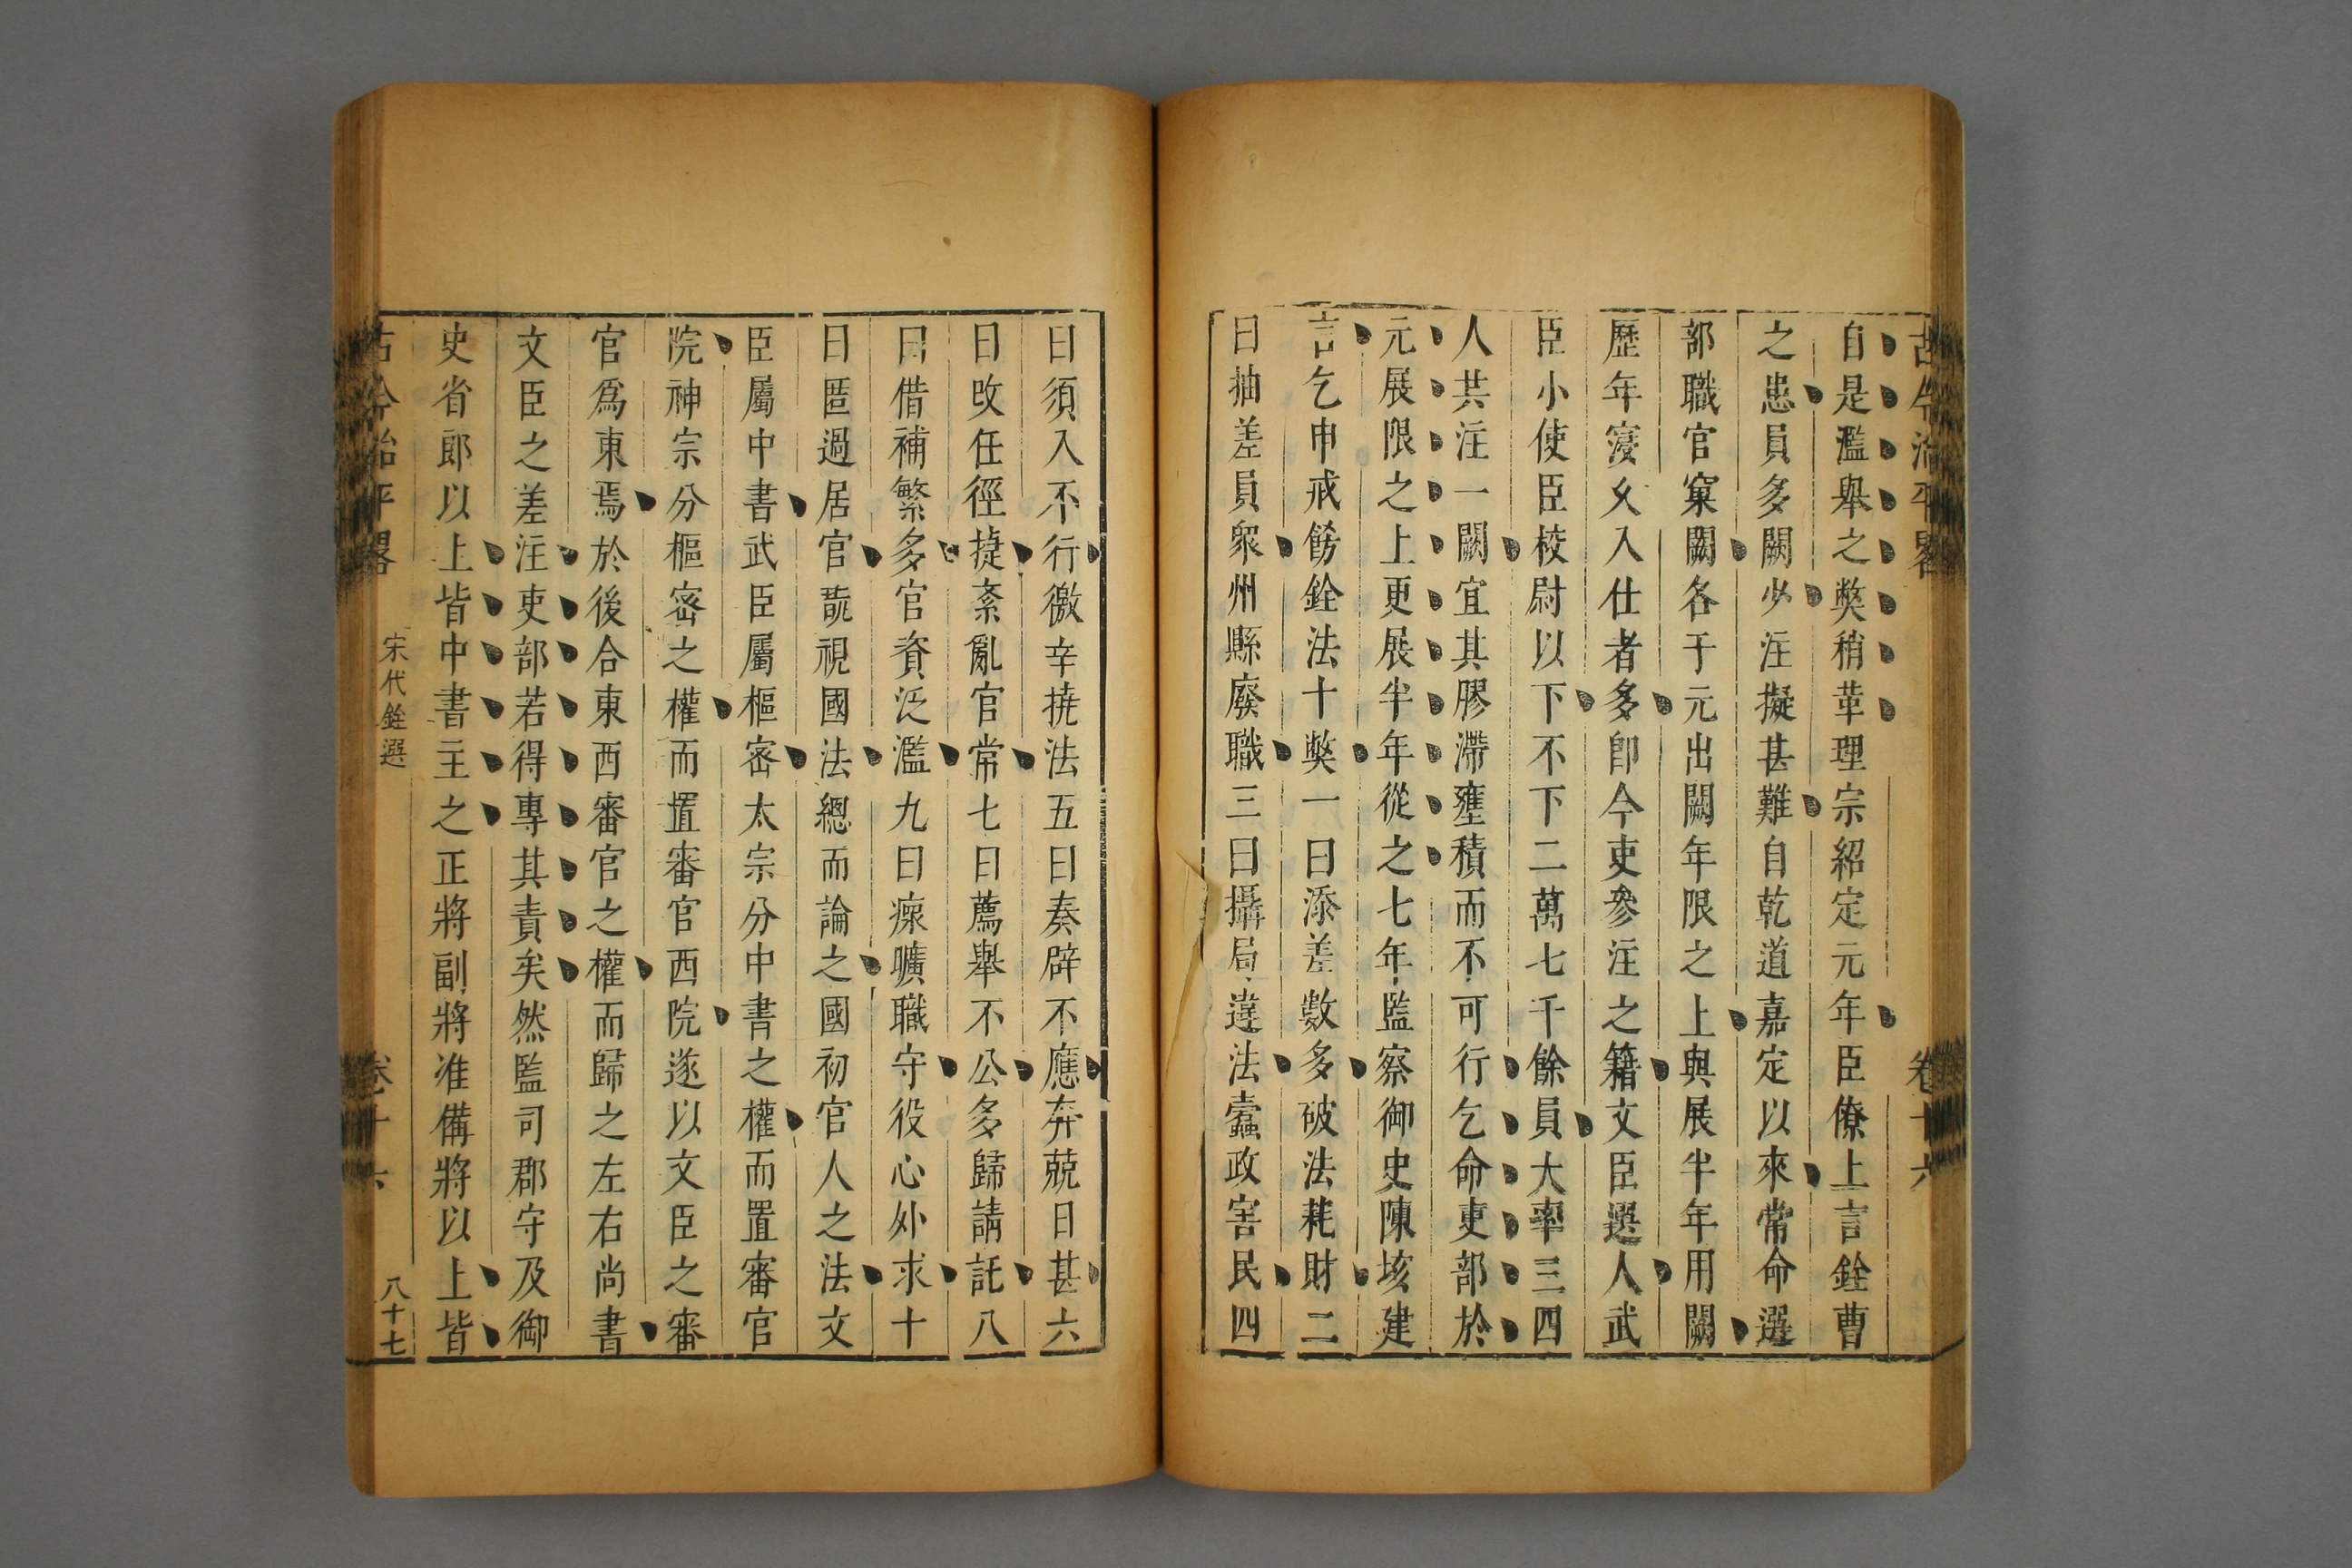 古今治平畧
卷十六
自是濫舉之獘稍革理宗紹定元年臣僚上言銓曹
之患員多闕少注擬甚難自乾道嘉定以來常命選
部職官窠闕各于元出闕年限之上與展半年用闕
歷年寖久入仕者多卽今吏參注之籍文臣選人武
臣小使臣校尉以下不下二萬七千餘員大率三四
人共注一闕宜其膠滯壅積而不可行乞命吏部於
元展限之上更展半年從之七年監察御史陳垓建
言乞申戒餝銓法十獘一曰添差數多破法耗財二
曰抽差員衆州縣廢職三曰攝局違法蠹政害民四
曰須入不行徼幸撓法五曰奏辟不應奔競日甚六
曰改任徑捷紊亂官常七曰薦舉不公多歸請託八
曰借補繁多官資泛濫九曰瘝曠職守役心外求十
曰匿過居官蔑視國法總而論之國初官人之法文
臣屬中書武臣屬樞密太宗分中書之權而置審官
院神宗分樞密之權而置審官西院遂以文臣之審
官爲東焉於後合東西審官之權而歸之左右尚書
文臣之差注吏部若得專其責矣然監司郡守及御
史省郎以上皆中書主之正將副將准備將以上皆
古今治平畧
宋代銓選
卷十六
八十七